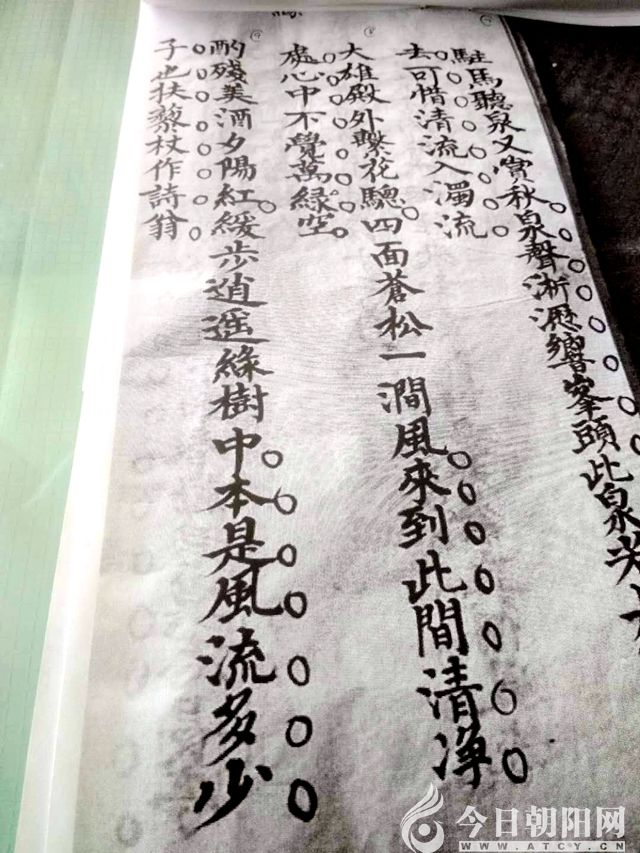 駐馬聽泉又賞秋泉聲淅瀝響峯頭此泉
去可惜清流入濁流
大雄殿外繫花驄四面蒼松一澗風來到此間清净
處心中不覺萬緑空
酌殘美酒夕陽紅緩步逍遥綠樹中本是風流多少
子也扶藜杖作詩翁
今日朝阳网
WWW.ATCY.CN